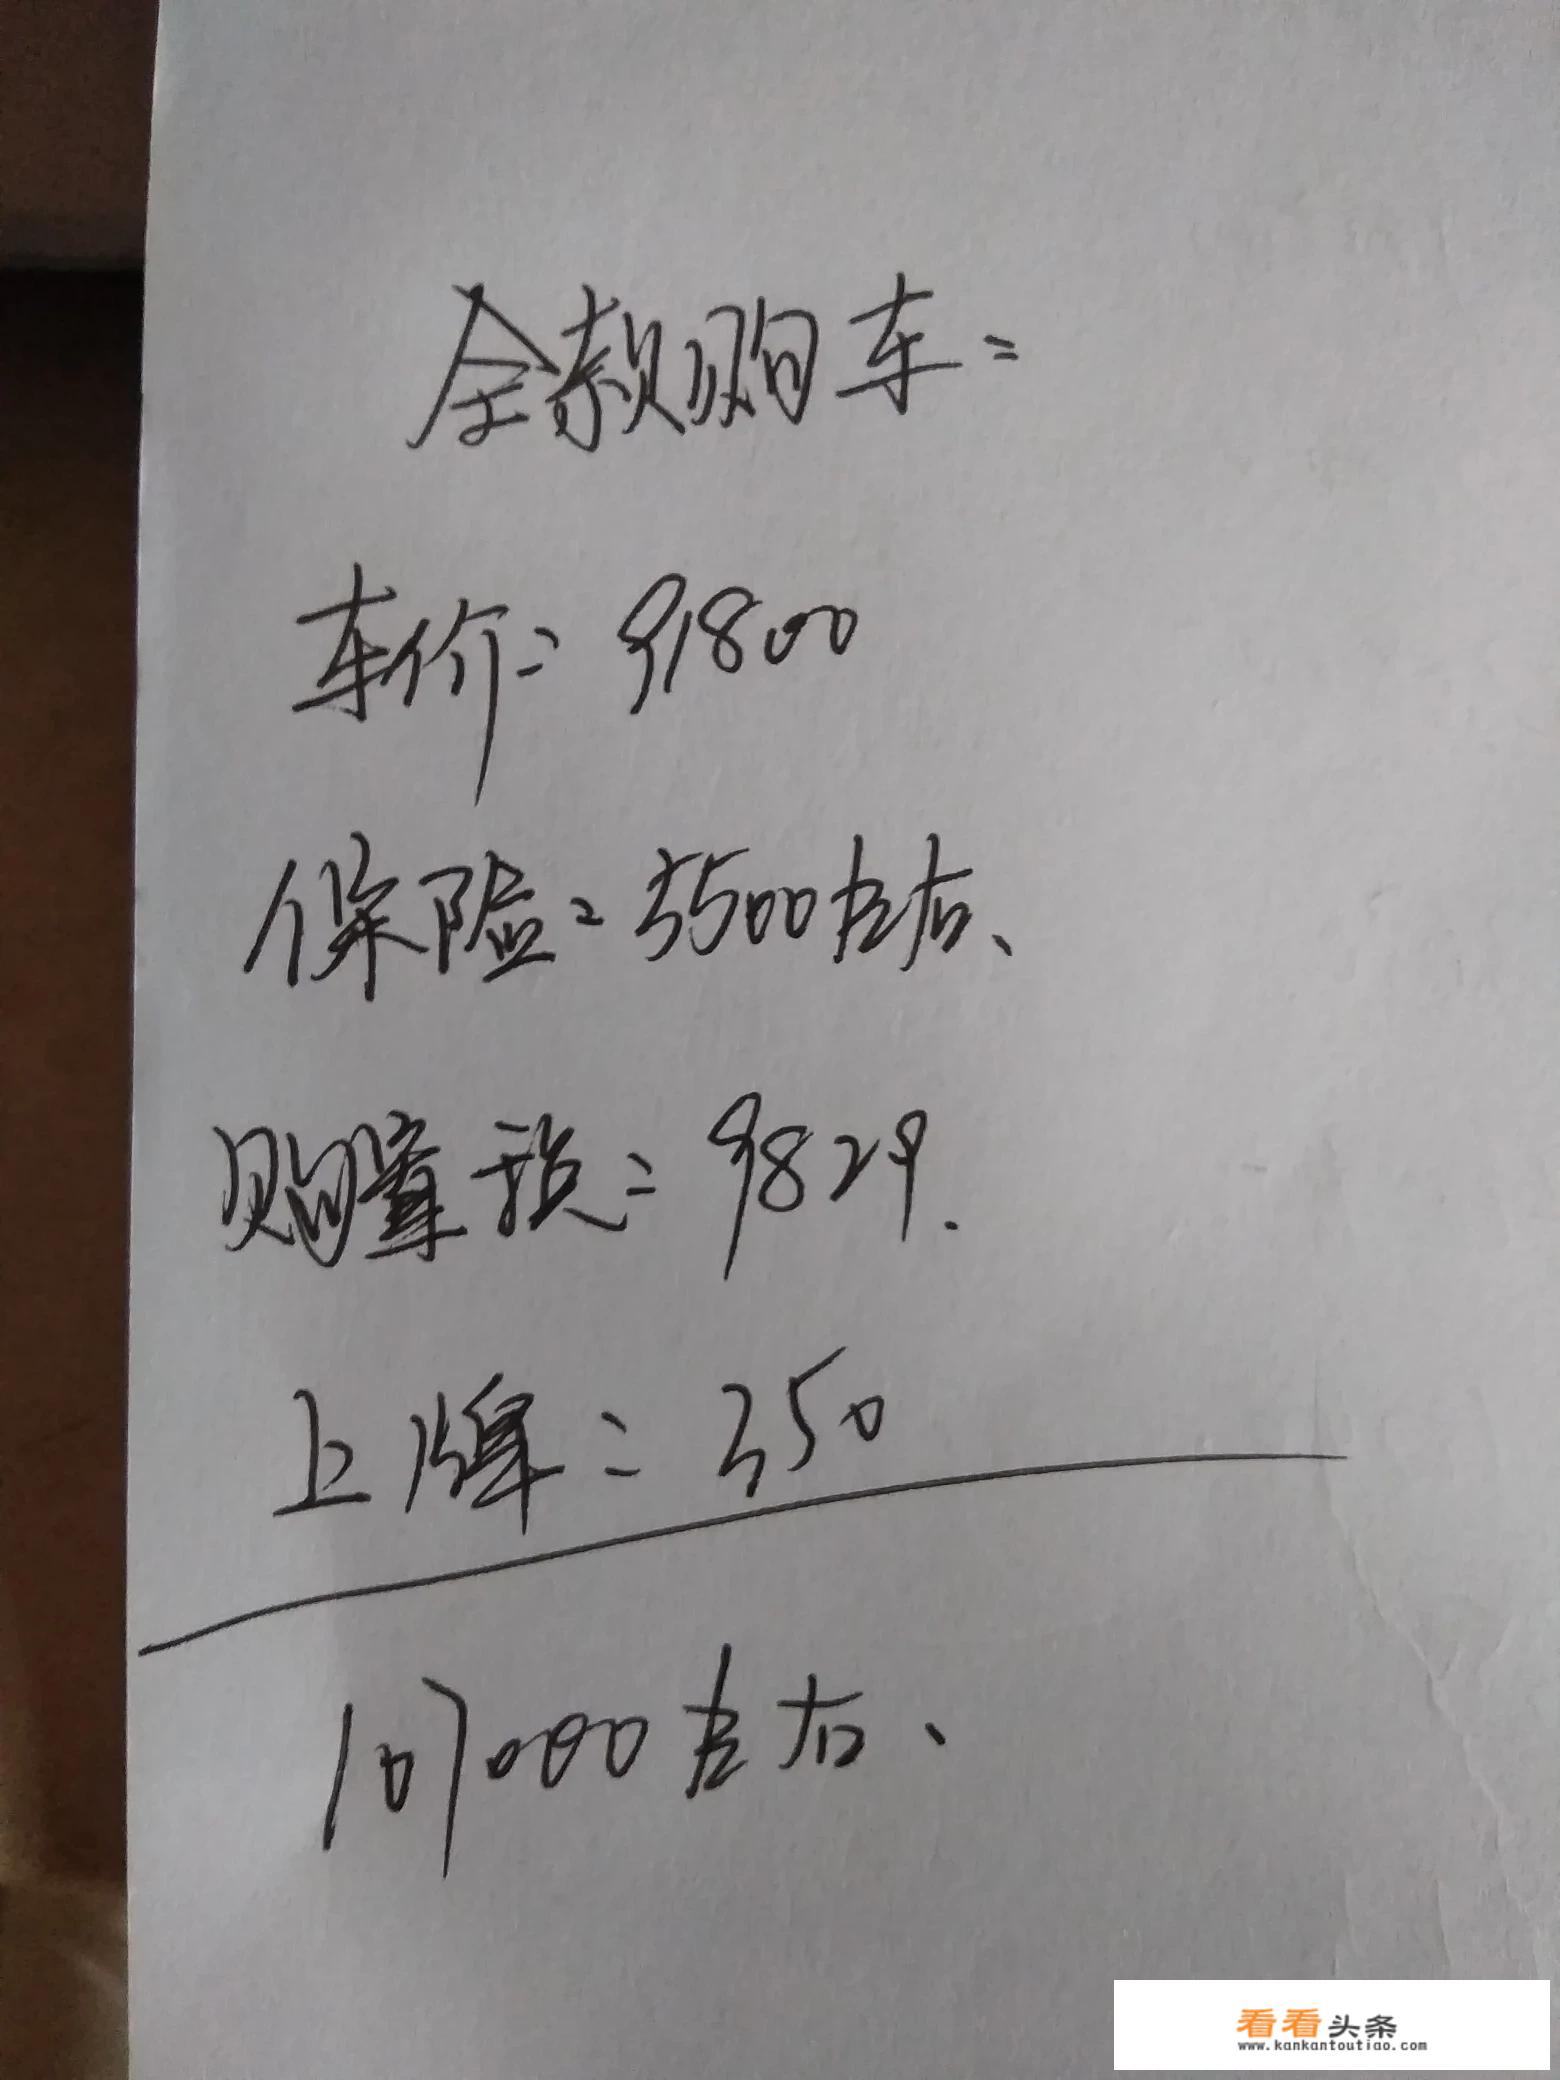 全款购车=
车价=91800
保险=5500左右、
购置税=9829.
上牌=350
107000左右、
看看头条
www.kankantoutiao.com